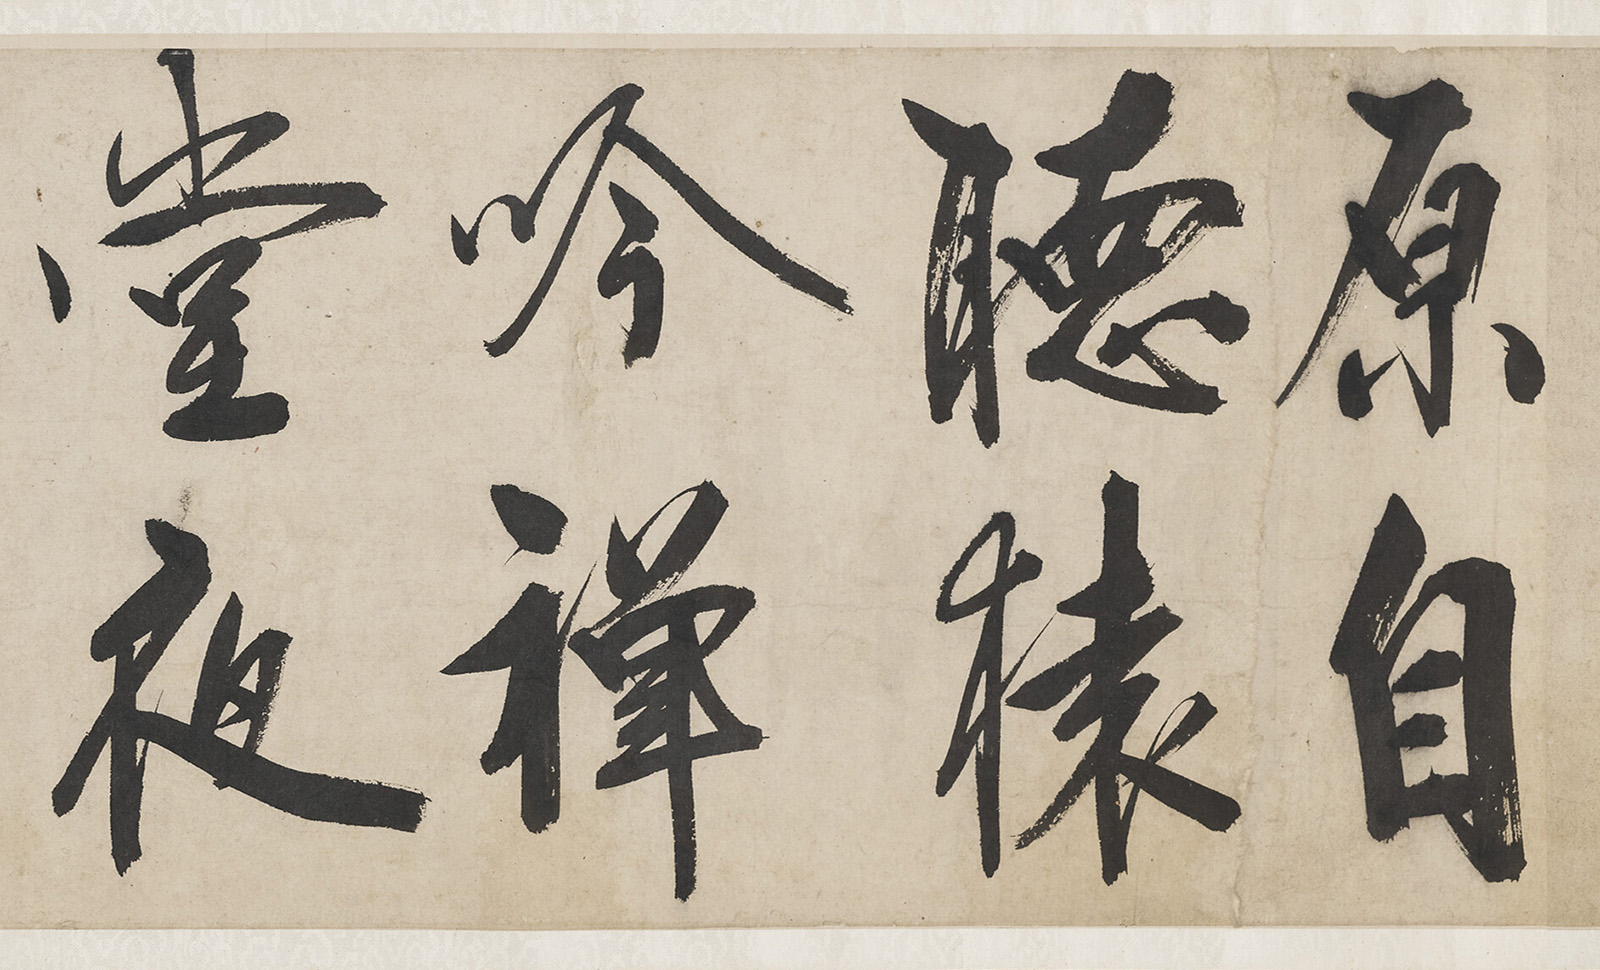 原自
聽猿
吟禪
堂夜